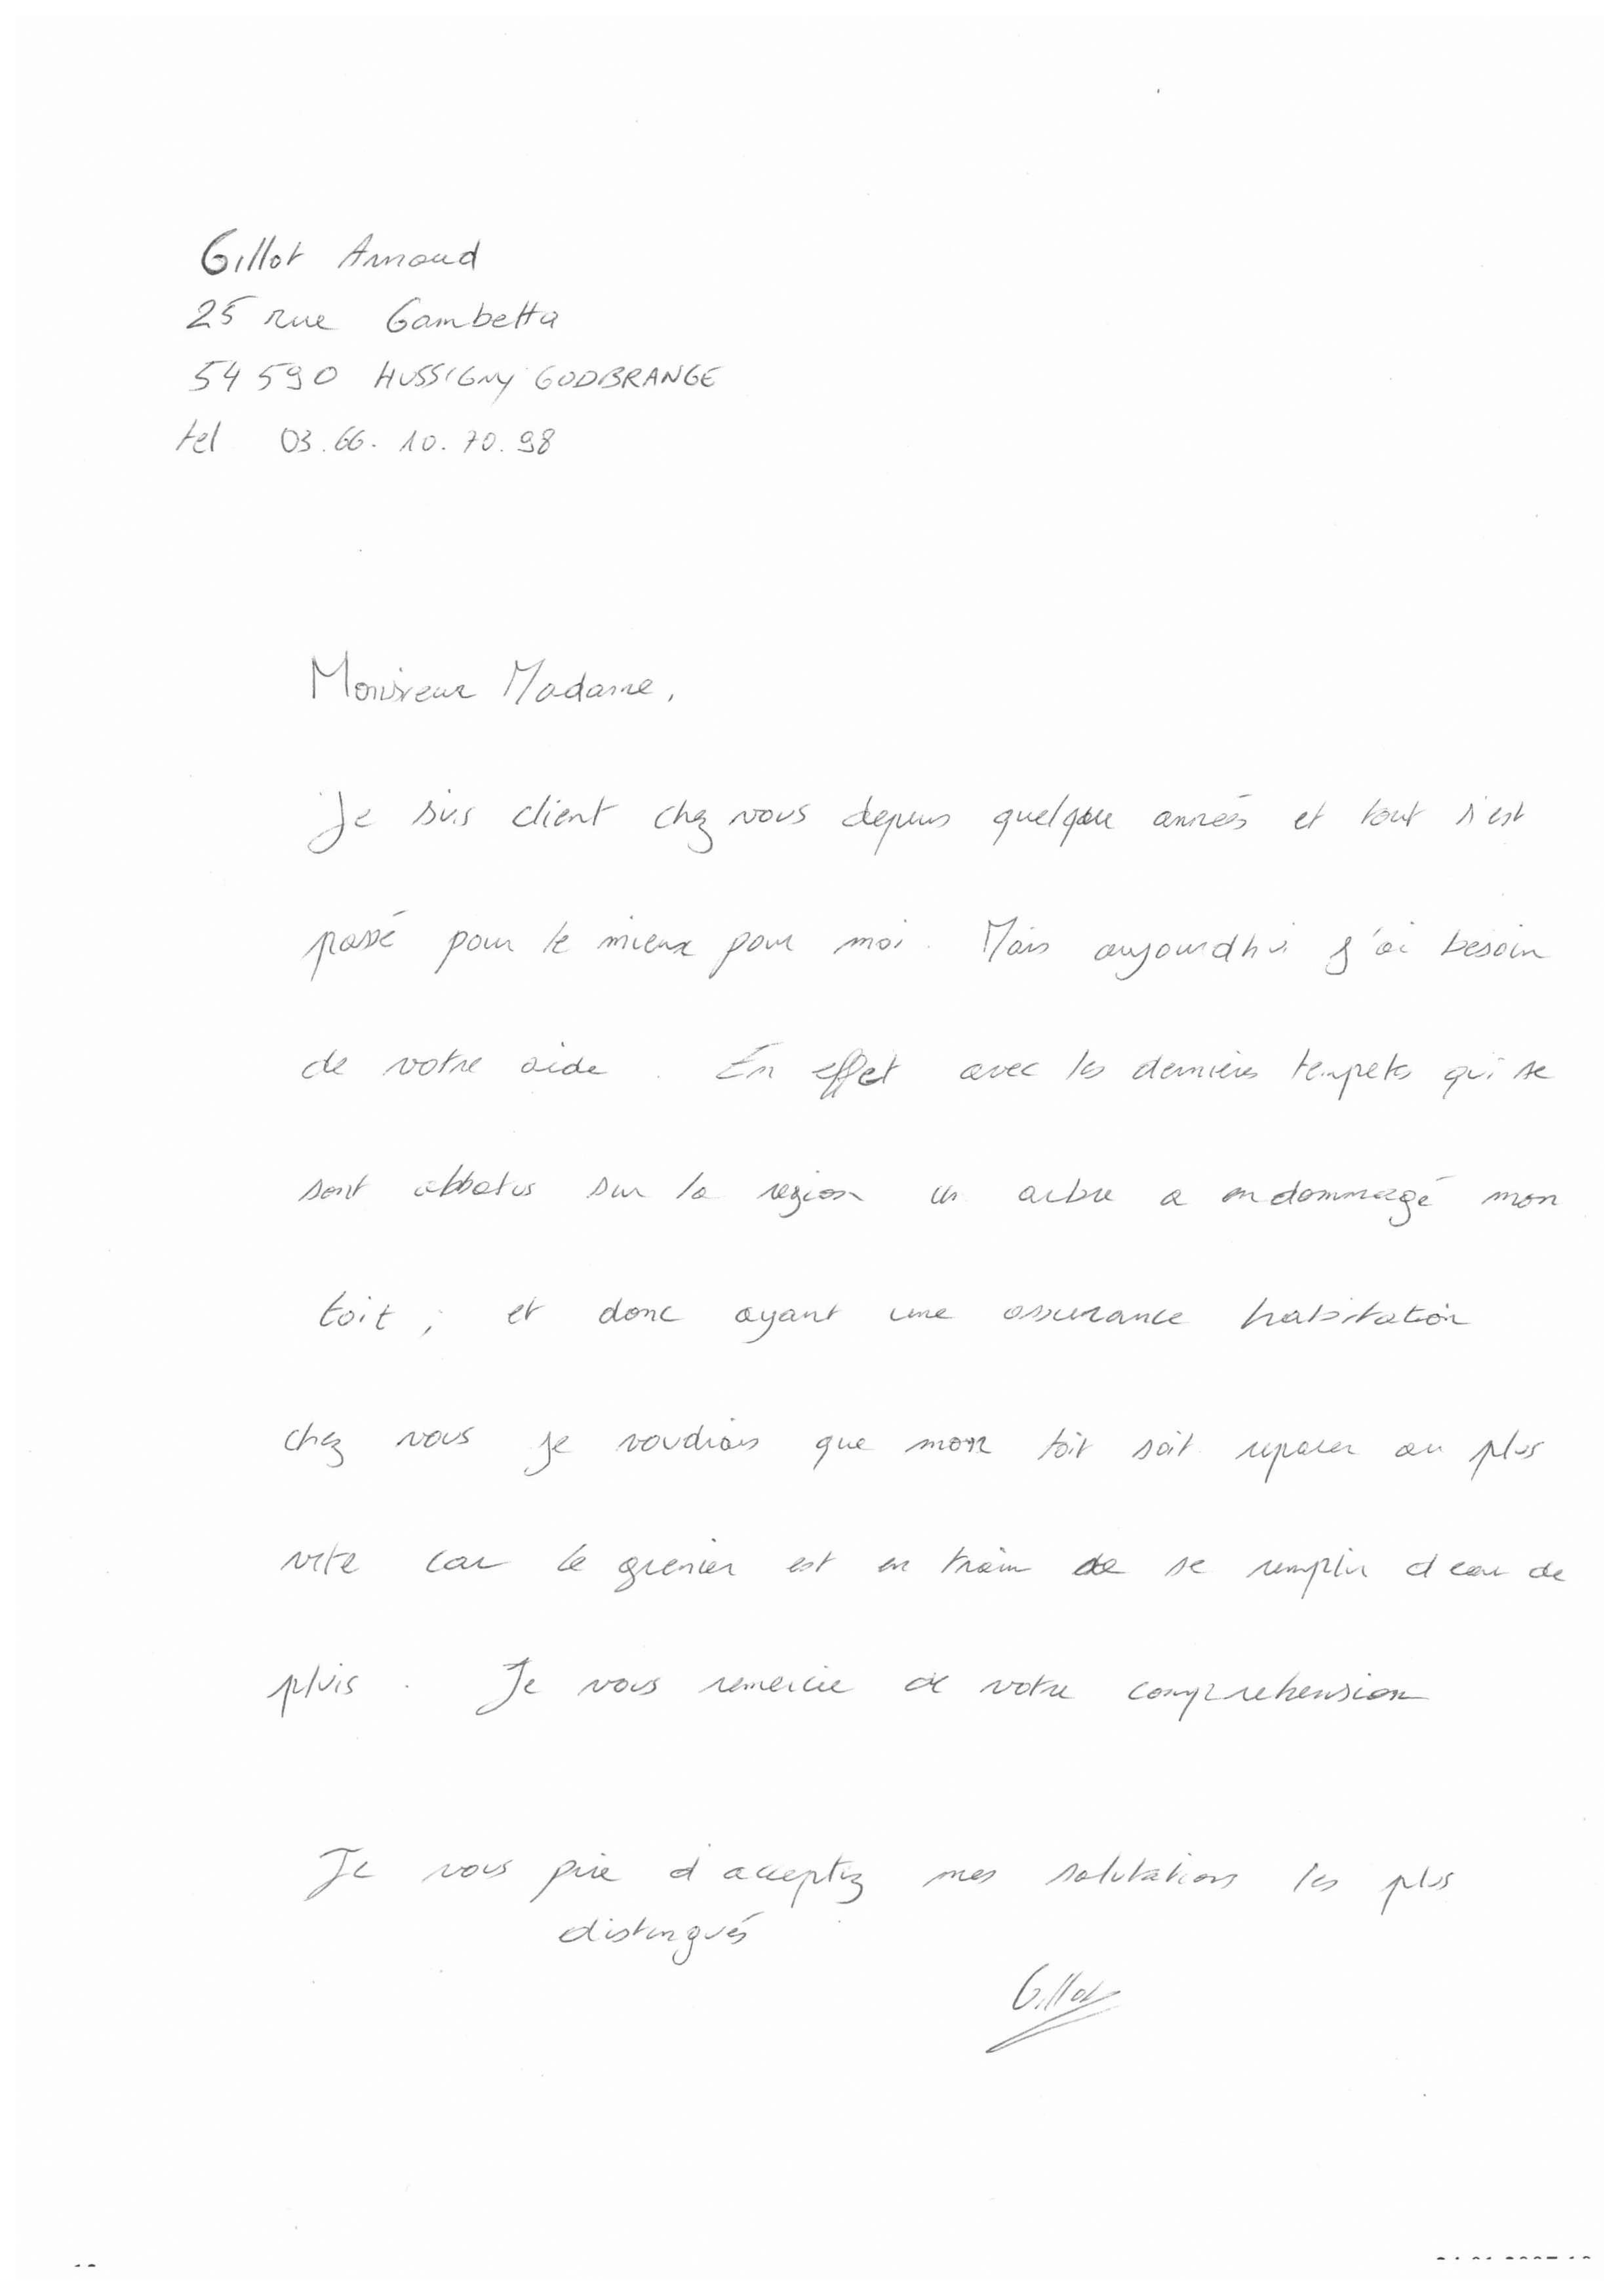 Gillot Arnaud
25 rue Gambetta
54590 HUSSIGNY GODBRANGE
tel 03.66.10.70.98
Monsieur Madame,
Je suis client chez vous depuis quelque années et tout s'est
passé pour le mieux pour moi. Mais aujourdhui j'ai besoin
de votre aide. En effet avec les dernières tempetes qui se
sont abbatus sur la region un arbre a endommagé mon
toit ; et donc ayant une assurance habitation
chez vous je voudrais que mon toit soit reparer au plus
vite car le grenier est en train de se remplir d eau de
pluis. Je vous remercie de votre comprehension
Je vous prie d acceptez mes salutations les plus
distingués
Gillot